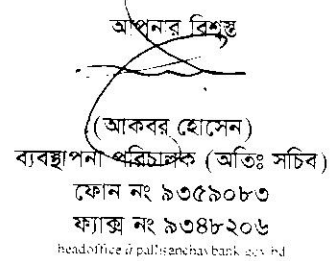 আপনার বিশ্বস্ত
(আকবর হোসেন)
ব্যবস্থাপনা পরিচালক (অতিঃ সচিব)
ফোন নং ৯৩৫৯০৮৩
ফ্যাক্স নং ৯৩৪৮২০৬
headoffice@pallisanchaybank.gov.bd